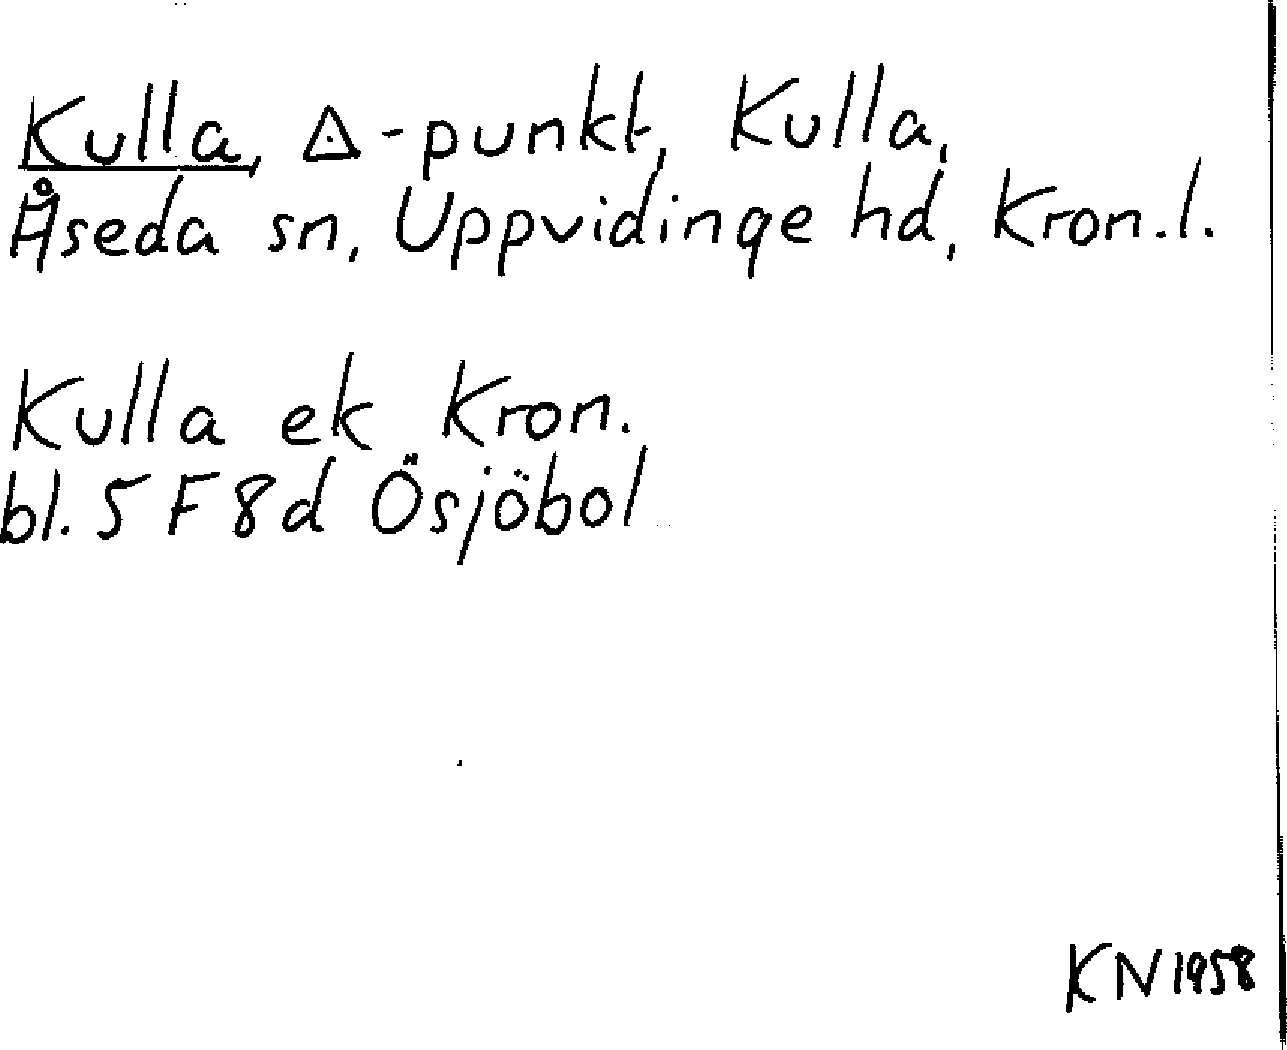 Kulla, △-punkt, Kulla,
Åseda sn, Uppvidinge hd, Kron.l.
Kulla ek Kron.
bl. 5 F 8d Ösjöbol
KN 1958